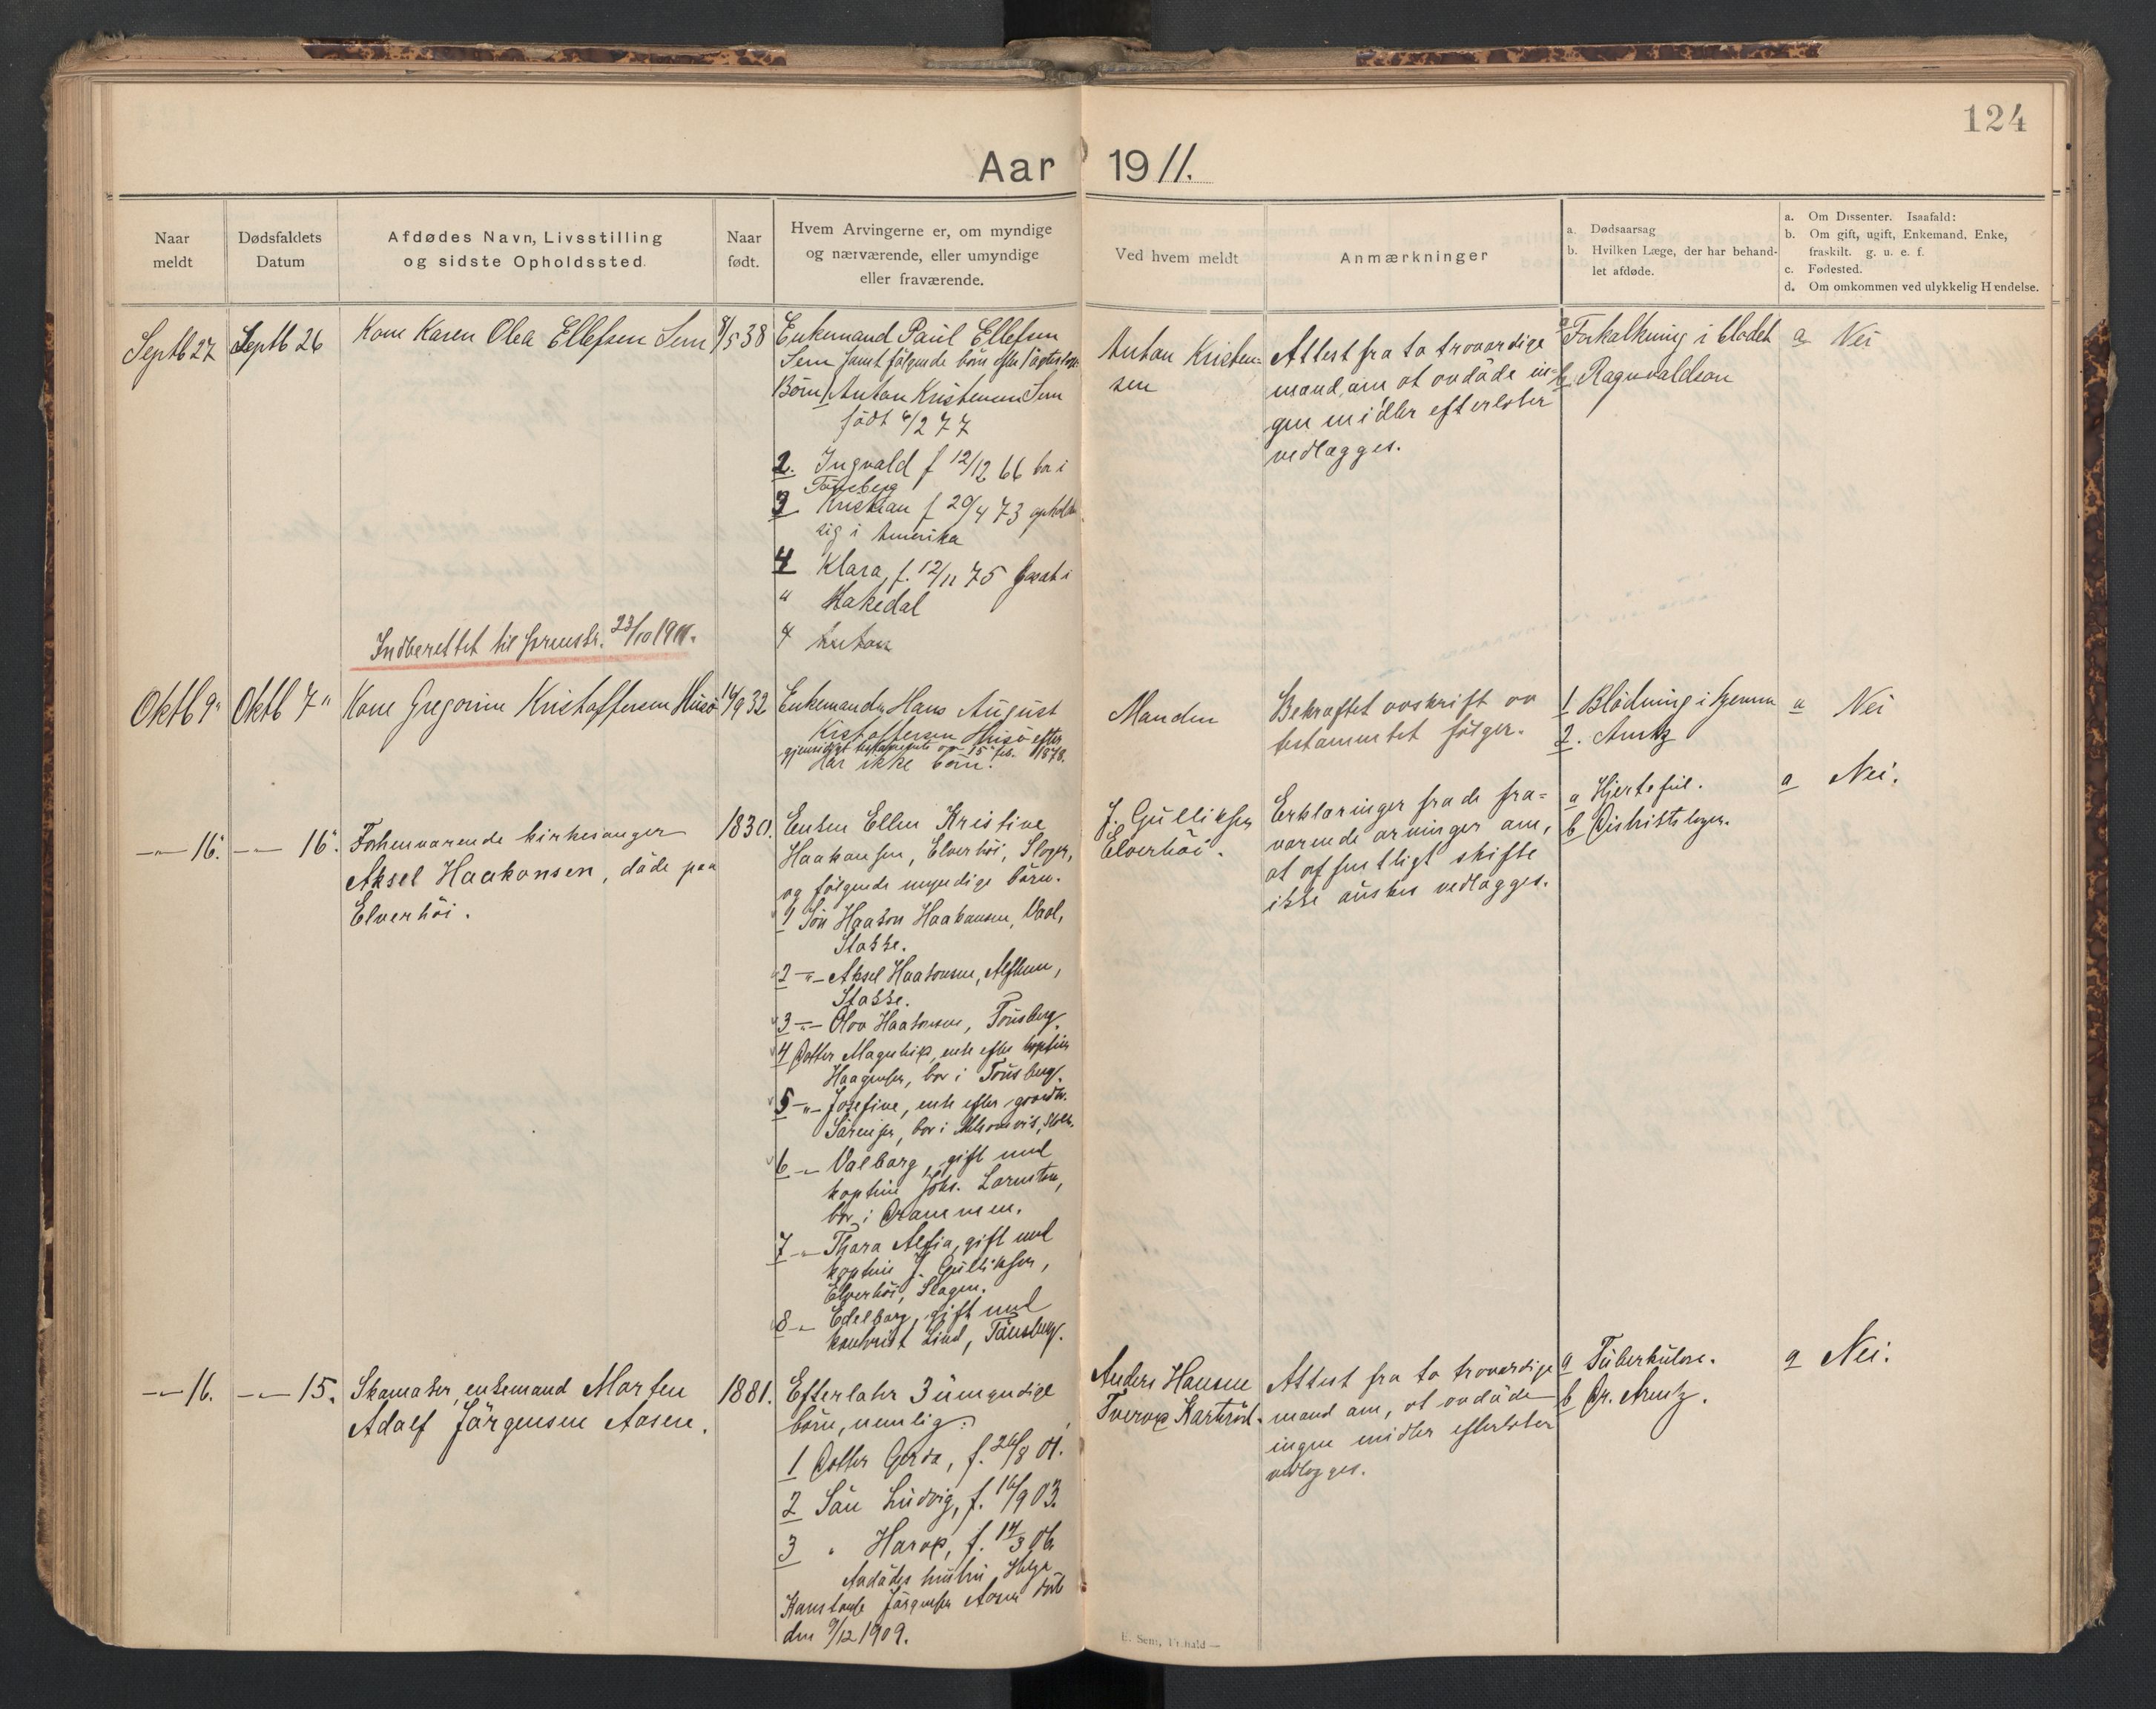 124
Aar 1911.
Naar meldt
Dødsfaldets Datum
Afdødes Navn, Livsstilling og sidste Opholdssted.
Naar født.
Hvem Arvingerne er, om myndige og nærværende, eller umyndige eller fraværende.
Ved hvem meldt
Anmærkninger
a. Dødsaarsag
b. Hvilken Læge, der har behandlet afdøde.
a. Om Dissenter. Isaafald:
b. Om gift, ugift, Enkemand, Enke, fraskilt. g. u. e. f.
c. Fødested.
d. Om omkommen ved ulykkelig Hændelse.
Septb 27
Septb 26
Kone Karen Olea Ellefsen Sem
8/5 38
Enkemand Paul Ellefsen
Sem samt følgende børn
Børn 1 Anton Kristensen Sem
født 6/2 77
2. Ingvald f 12/12 66 bor i
Tønsberg
3 Kristian f 20/4 73 opholder
sig i Amerika
4 Klara, f. 12/11 75 bosat i
" Hakedal
4 Anton
Anton Kristen-
sen
Attest fra to troværdige
mænd om at avdøde in-
gen midler efterlater
vedlægges.
a Forkalkning i blodet
b Ragnvaldson
a Nei
Indberettet til sorenskr. 23/10 1911.
Oktb 9"
Oktb 7"
Kone Gregorine Kristoffersen Husø
14/9 32
Enkemand Hans August
Kristoffersen Husø efter
gjensidigt testamente av 15 feb. 1878.
Har ikke børn.
Manden
Bekræftet avskrift av
testamentet følger.
1. Blødning i hjernen
2. Arntz
a Nei
-"- 16.
-"- 16.
Forhenværende kirkesanger
Aksel Haakonsen, døde paa
Elverhøi.
1830.
Enken Ellen Kristine
Haakonsen, Elverhøi, Slagen,
og følgende myndige børn.
1 Søn Haakon Haakonsen, Vaal,
Stokke.
2 -"- Aksel Haakonsen,
Stokke.
3 -"- Olav Haakonsen, Tønsberg.
4 Datter enke efter kaptein
Haagensen, bor i Tønsberg.
5 -"- Josefine, enke efter gaardbr.
Sørensen, bor i
6 -"- Valborg, gift med
kaptein Johs.
bor i Drammen.
7 -"- Thora gift med
kaptein J. Gulliksen,
Elverhøi, Slagen.
8 -"- Edelborg, gift med
Lind, Tønsberg.
J. Gulliksen
Elverhøi.
Erklæringer fra de fra-
værende arvinger om,
at offentligt skifte
ikke ønskes vedlægges.
a Hjertefeil.
b Distriktslægen.
a Nei.
-"- 16.
-"- 15.
Skomaker, enkemand Morten
Adolf Jørgensen Aasen.
1881.
Efterlater 3 umyndige
børn, nemlig:
1 Datter Gerda, f. 26/8 01.
2 Søn Ludvig, f. 16/9 03.
3 " f. 14/3 06
Avdødes hustru Helga
Konstanse Jørgensen Aasen døde
den 9/12 1909.
Anders Hansen
Attest fra to troværdige
mænd om, at avdøde
ingen midler efterlater
vedlægges.
a Tuberkulose.
b Dr. Arentz.
a Nei.